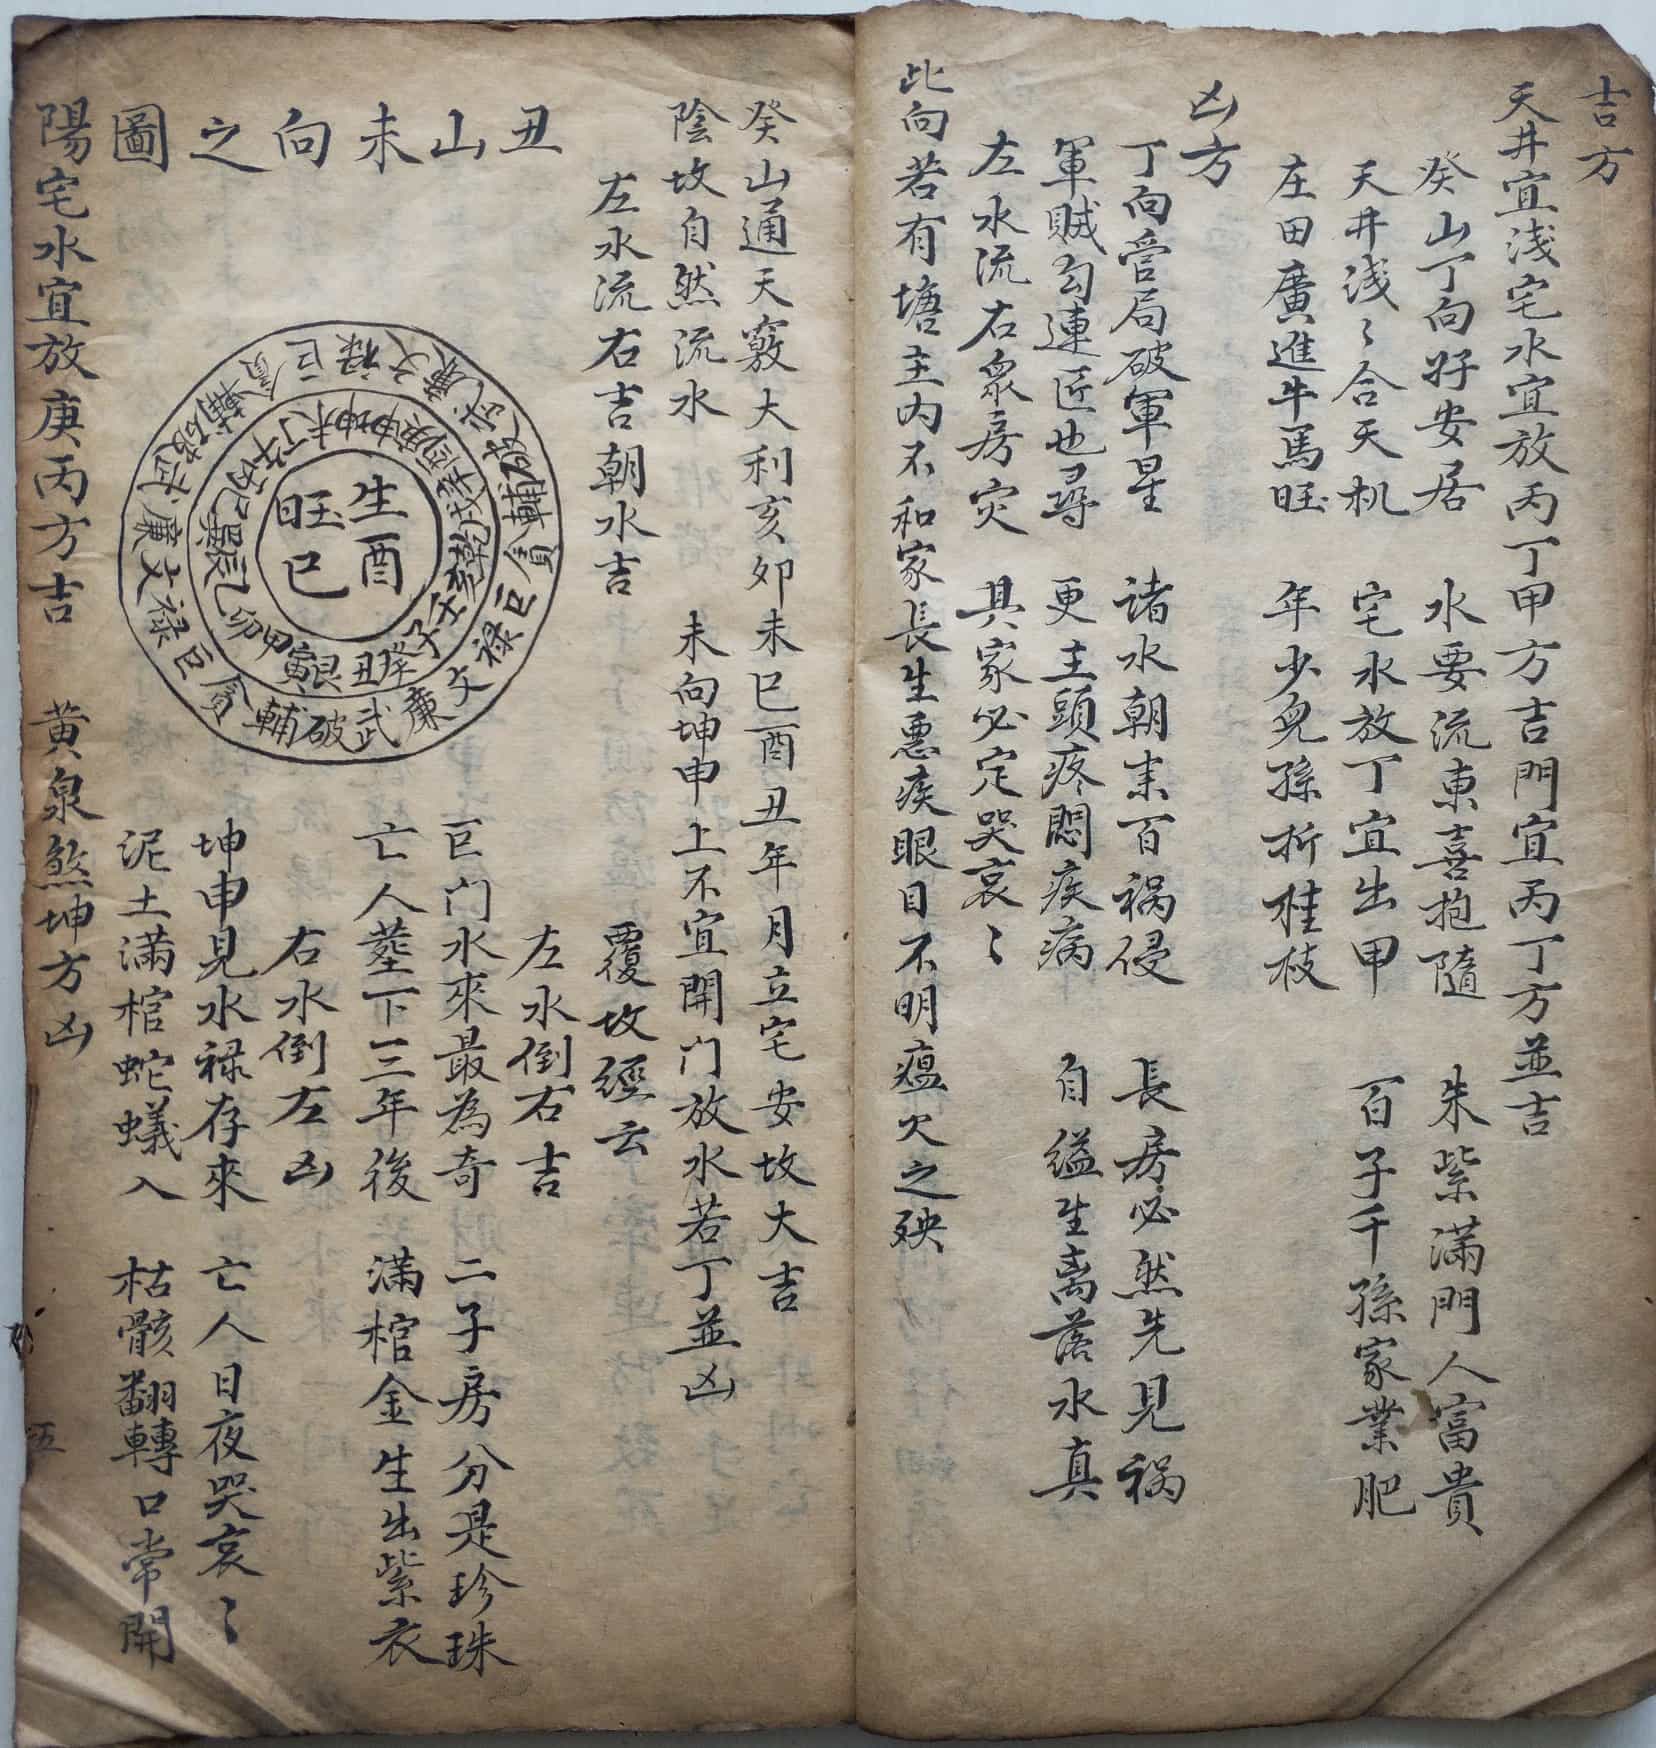 吉方
天井宜浅宅水宜放丙丁甲方吉門宜丙丁方並吉
癸山丁向好安居 水要流東喜抱隨 朱紫滿門人富貴
天井浅〻合天机 宅水放丁宜出甲 百子千孫家業肥
庄田廣進牛馬旺 年少兒孫折桂枝
凶方
丁向管局破軍星 諸水朝来百禍侵 長房必然先見禍
軍賊勾連匠也尋 更主頭疼悶疾病 自縊生离落水真
左水流右衆房灾 其家必定哭哀〻
此向若有塘主内不和家長生悪疾眼目不明瘟火之殃
癸山通天竅大利亥卯未巳酉丑年月立宅安坟大吉
陰坟自然流水 未向坤申上不宜開门放水若丁並凶
左水流右吉朝水吉 覆坟經云
左水倒右吉
巨门水來最為奇 二子房分是珍珠
亡人塟下三年後 滿棺金生出紫衣
右水倒左凶
坤申見水禄存來 亡人日夜哭哀〻
泥土滿棺蛇蟻入 枯骸翻轉口常開
丑山未向之圖
生酉
旺巳
丑癸子壬亥乾戌辛酉庚申坤未丁午丙巳巽辰乙卯甲寅艮
武廉文禄巨貪輔破武廉文禄巨貪輔破武廉文禄巨貪輔破
陽宅水宜放庚丙方吉 黄泉煞坤方凶
五